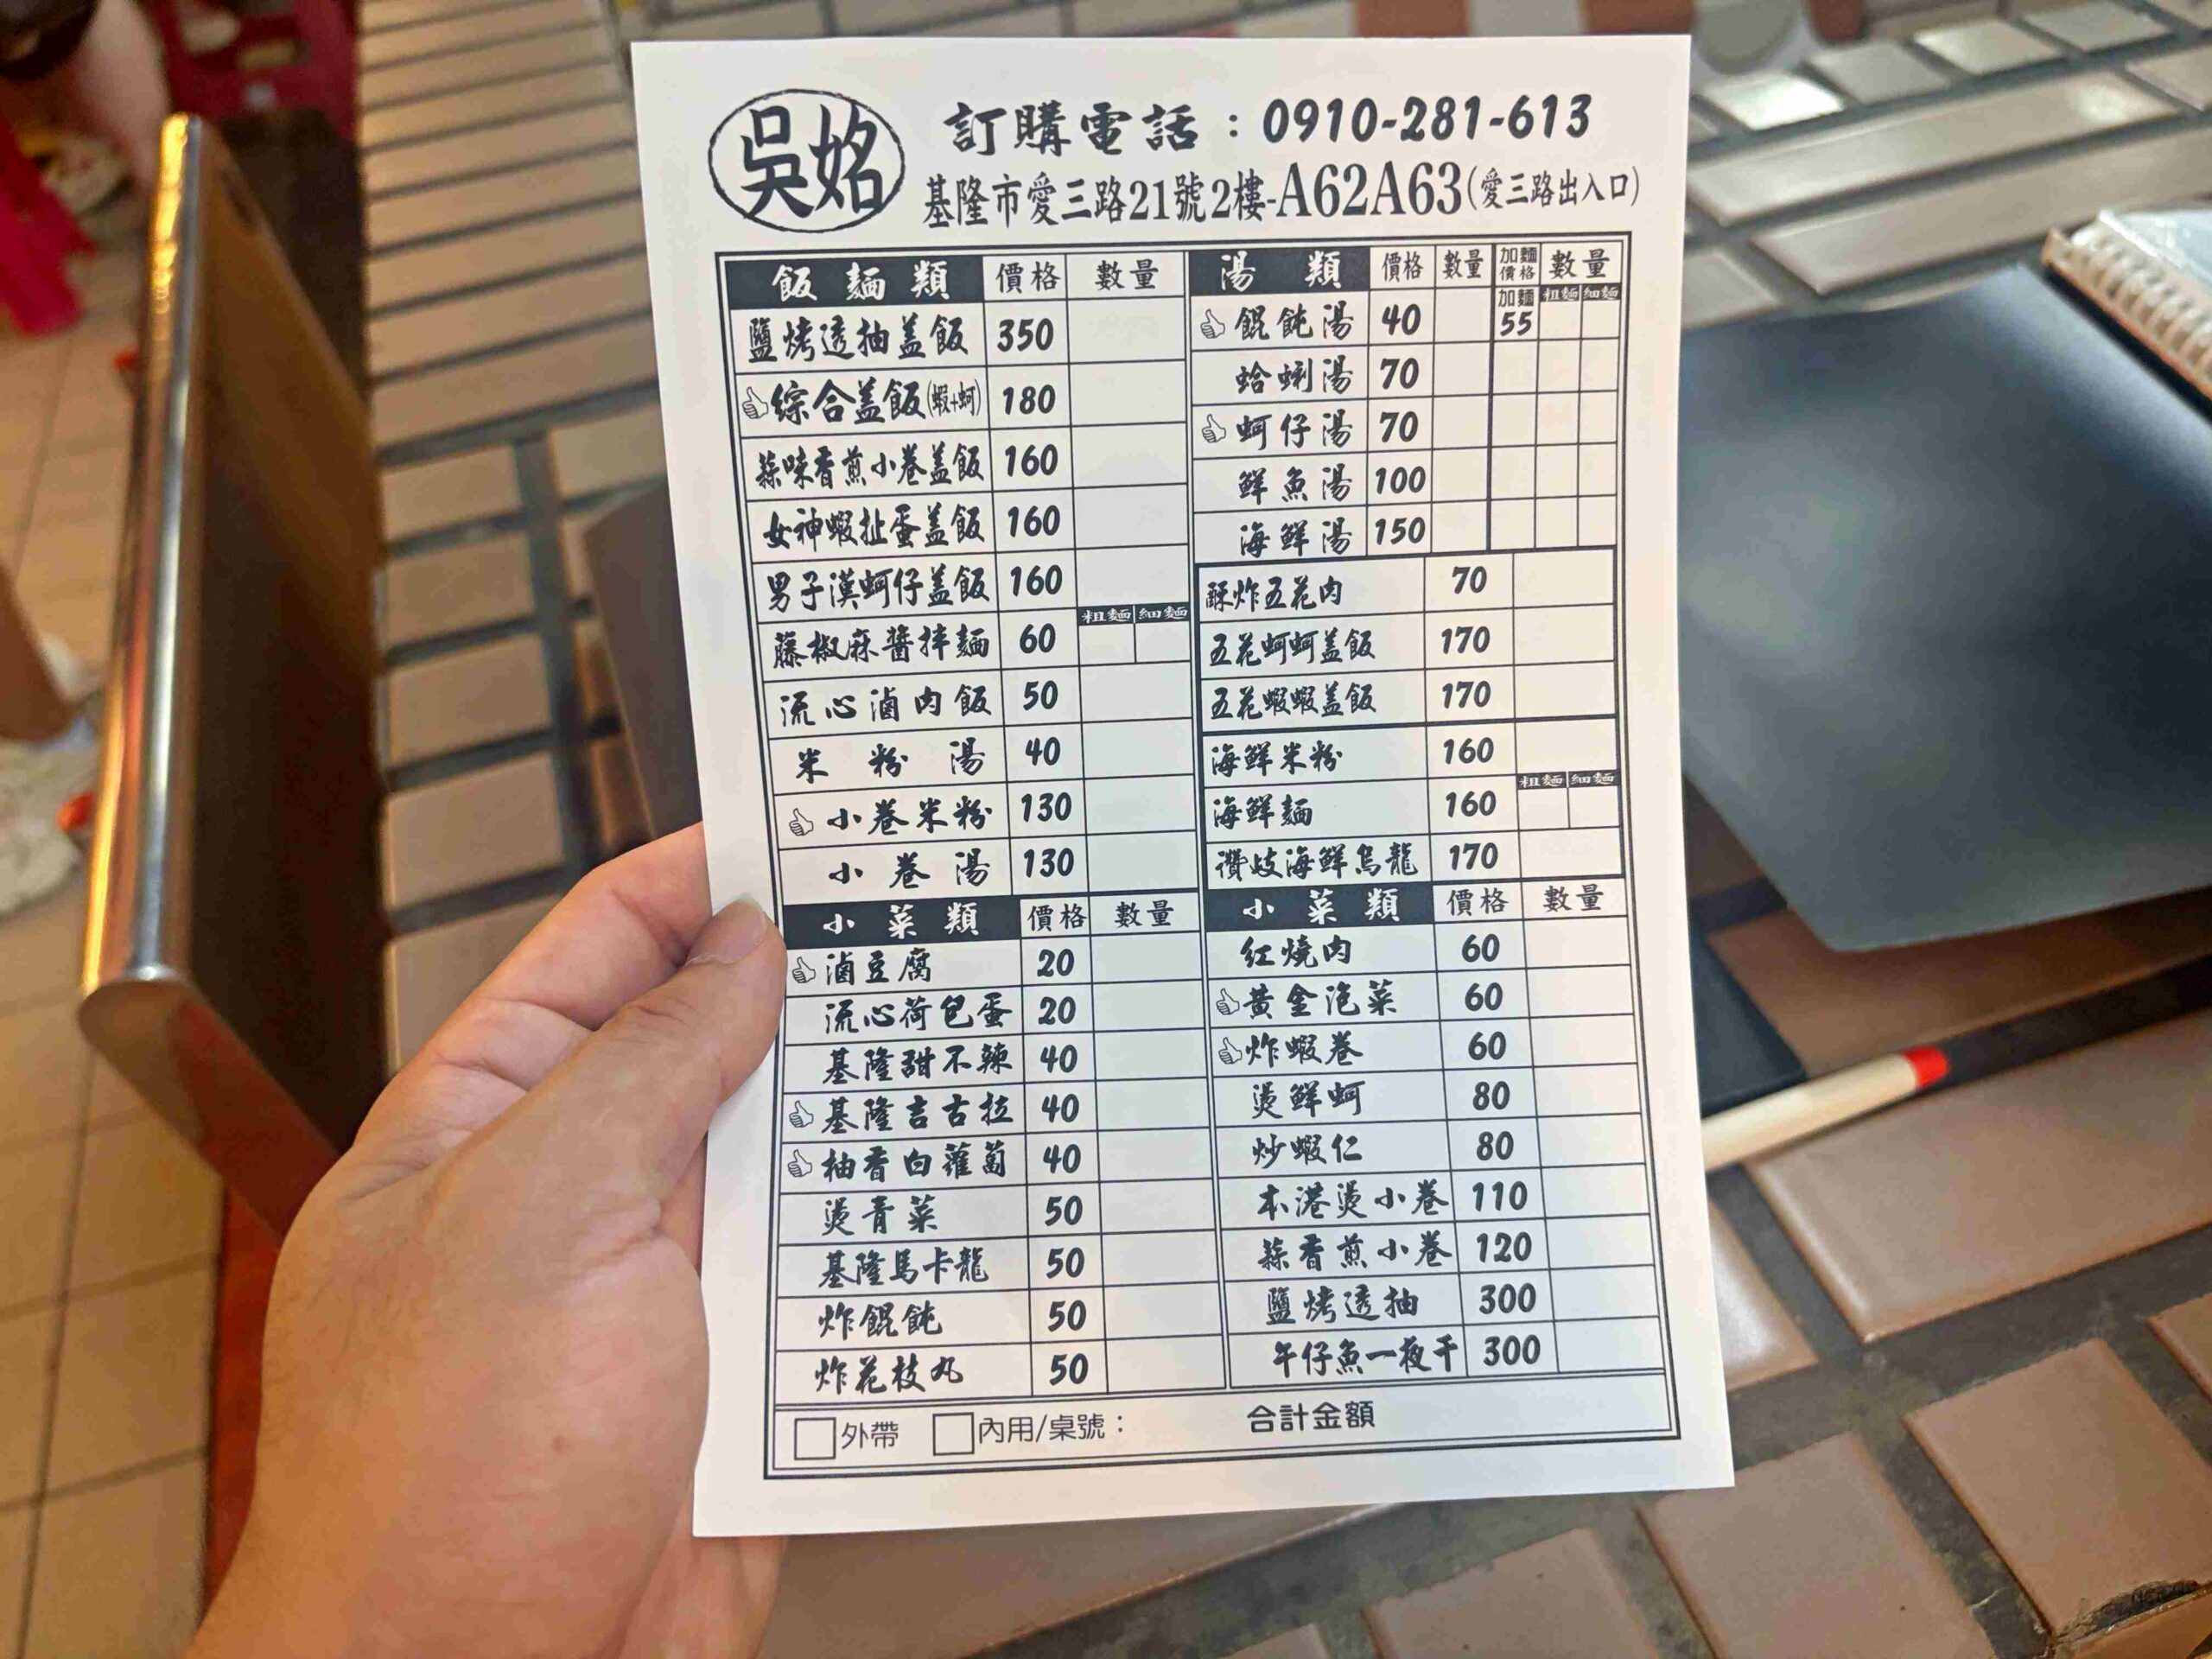 吳姳
訂購電話：0910-281-613
基隆市愛三路21號2樓-A62A63(愛三路出入口)
飯麵類 價格 數量
鹽烤透抽蓋飯 350
綜合蓋飯(蝦+蚵) 180
蒜味香煎小卷蓋飯 160
女神蝦扯蛋蓋飯 160
男子漢蚵仔蓋飯 160
粗麵 細麵
藤椒麻醬拌麵 60
流心滷肉飯 50
米粉湯 40
小卷米粉 130
小卷湯 130
湯類 價格 數量 加麵價格 數量
加麵 粗麵 細麵
餛飩湯 40 55
蛤蜊湯 70
蚵仔湯 70
鮮魚湯 100
海鮮湯 150
酥炸五花肉 70
五花蚵蚵蓋飯 170
五花蝦蝦蓋飯 170
海鮮米粉 160
粗麵 細麵
海鮮麵 160
讚岐海鮮烏龍 170
小菜類 價格 數量
滷豆腐 20
流心荷包蛋 20
基隆甜不辣 40
基隆吉古拉 40
柚香白蘿蔔 40
燙青菜 50
基隆馬卡龍 50
炸餛飩 50
炸花枝丸 50
小菜類 價格 數量
紅燒肉 60
黃金泡菜 60
炸蝦卷 60
燙鮮蚵 80
炒蝦仁 80
本港燙小卷 110
蒜香煎小卷 120
鹽烤透抽 300
午仔魚一夜干 300
外帶 內用/桌號： 合計金額